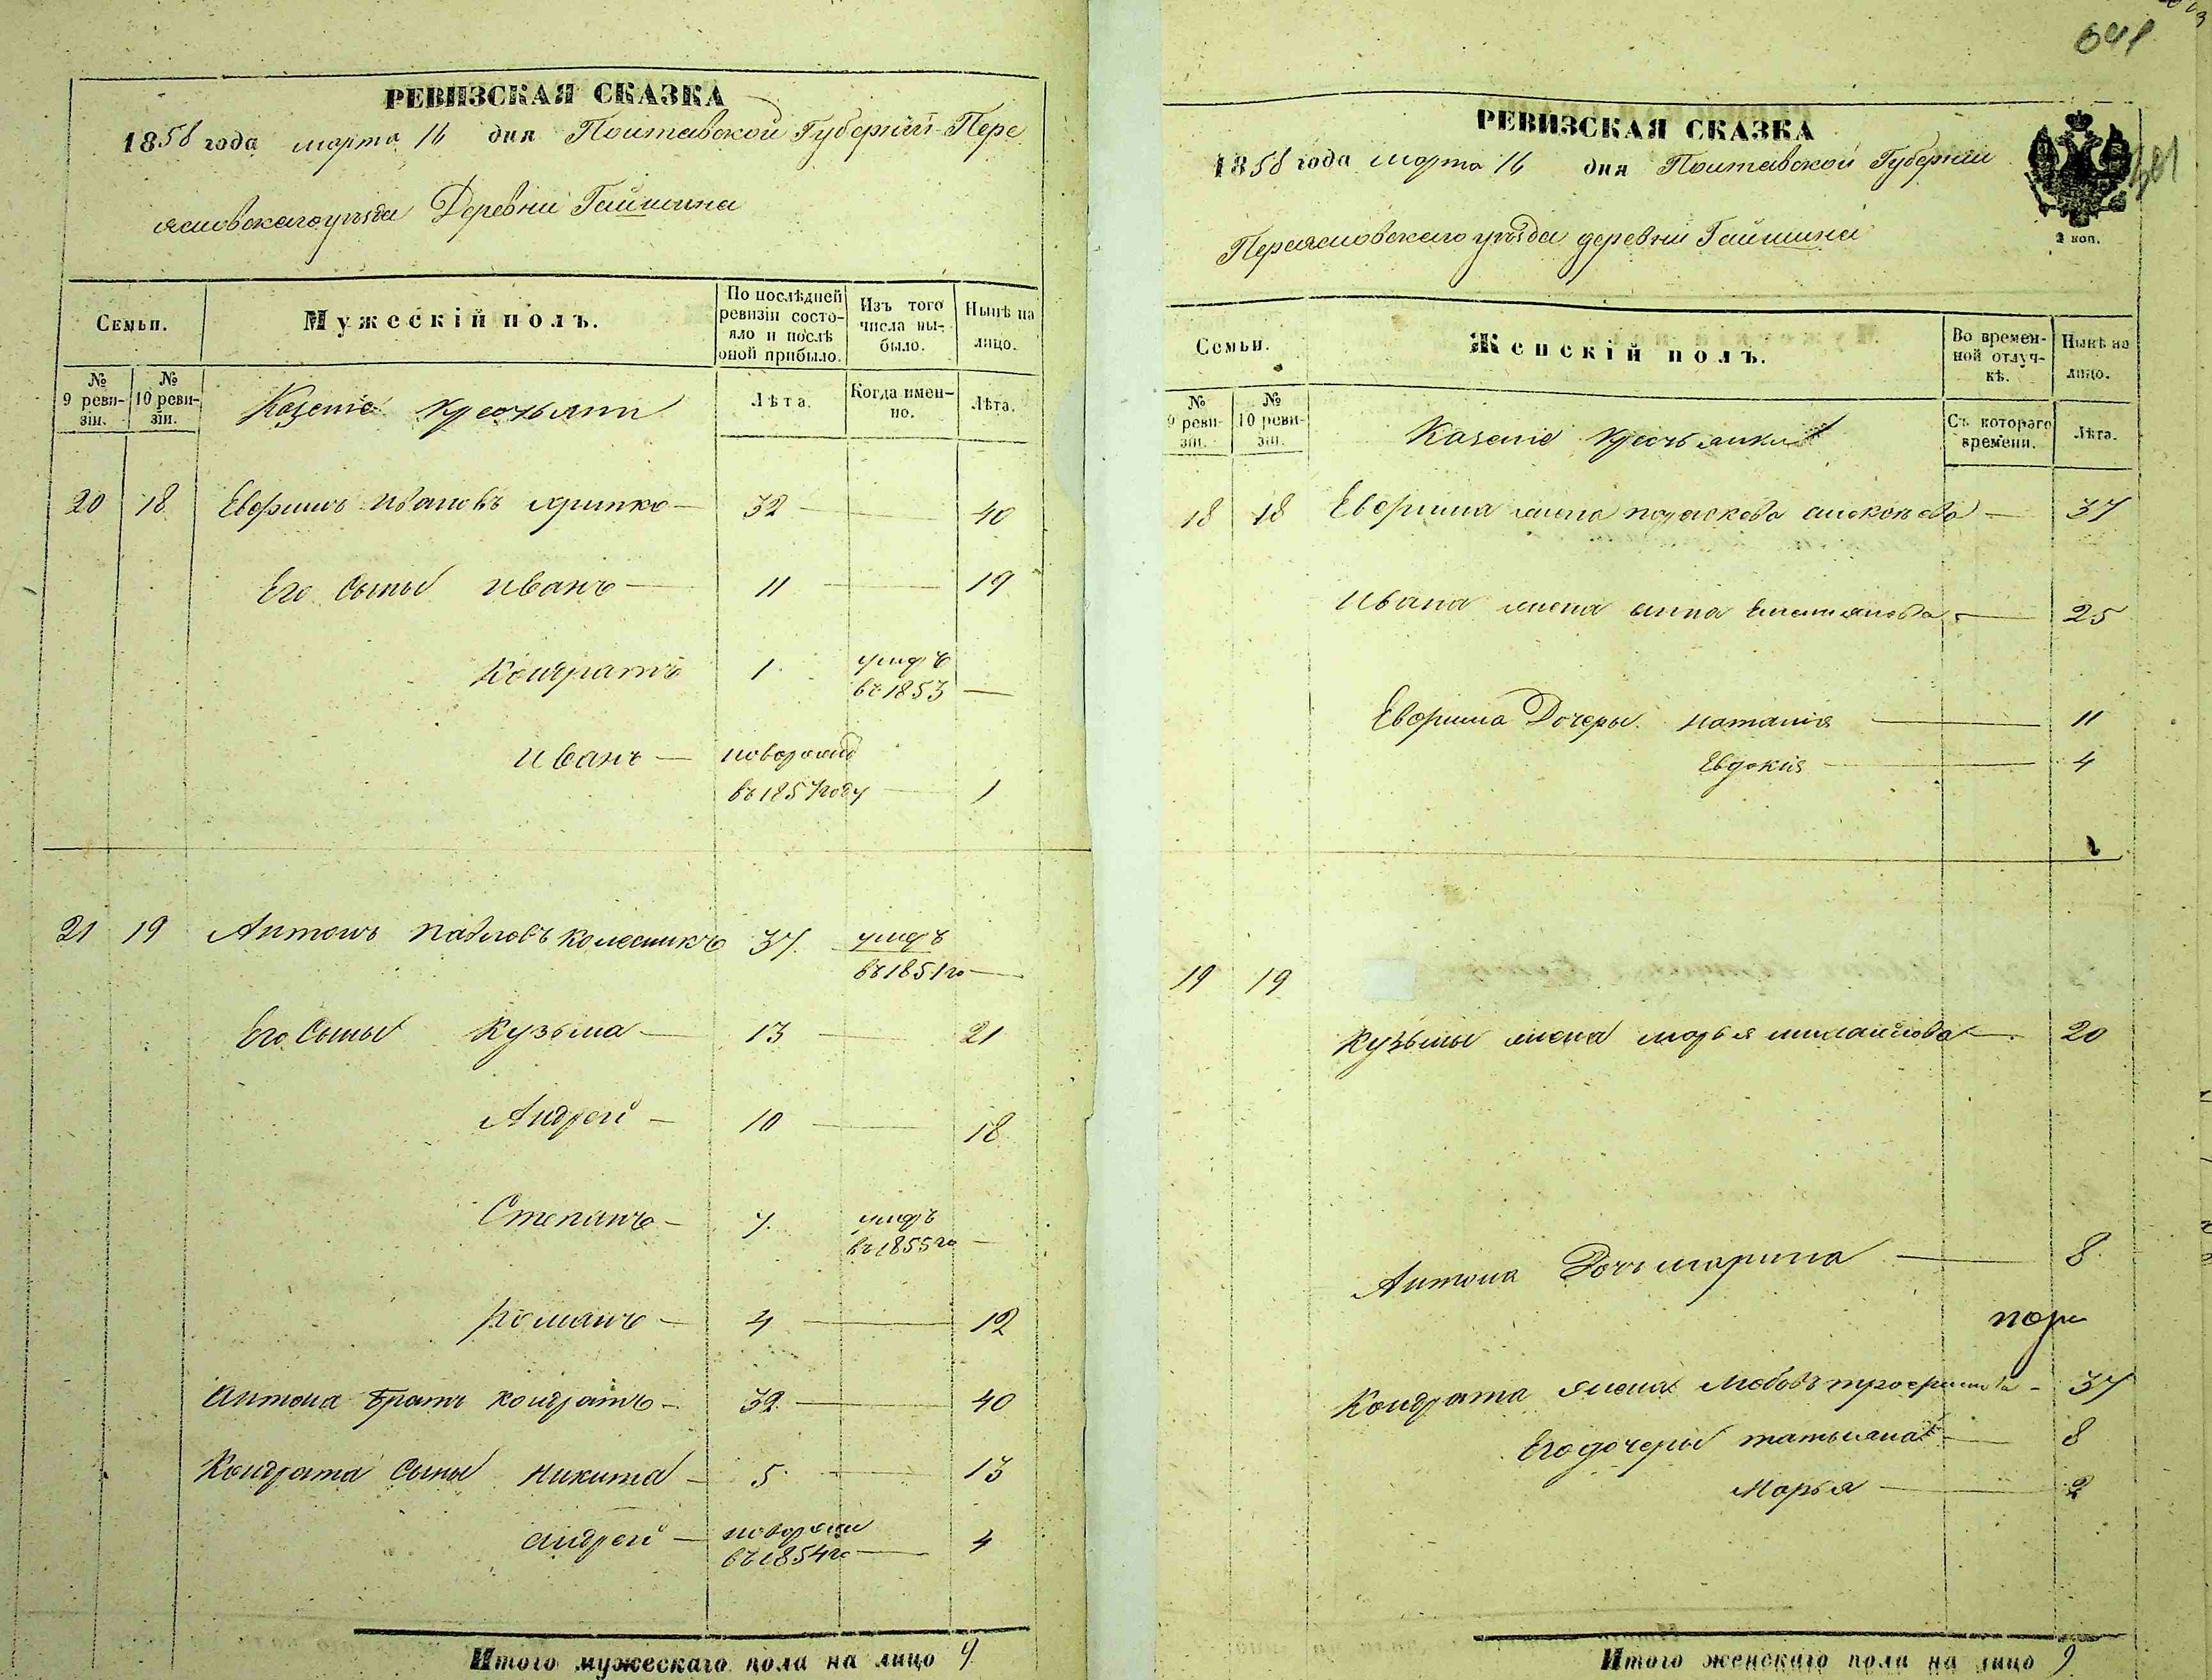 РЕВИЗСКАЯ СКАЗКА
1858 года марта 16 дня Полтавской Губернии Пере
яславскаго уезда Деревни Гайшина
Семьи.
Мужескій полъ.
По послѣдней ревизіи состояло и послѣ оной прибыло.
Изъ того числа выбыло.
Нынѣ на лицо.
№ 9 ревизіи.
№ 10 ревизіи.
Казенніе крестьяни
Лѣта.
Когда именно.
Лѣта.
20 18 Ефримъ Ивановъ 32 — 40
Его Сыны иванъ — 11 — 19
Кондратъ 1 умеръ
въ 1853 —
иванъ — новорожд
въ 1857 году — 1
21 19 Антонъ Павловъ Колесникъ 37 умеръ
въ 1851 го —
Его Сыны Кузьма — 13 — 21
Андрей — 10 — 18
Степанъ — 7 умеръ
въ 1855 го —
Романъ — 4 — 12
Антона братъ Кондратъ — 32 — 40
Кондрата Сыны Никита — 5 — 13
андрей — новорожд
въ 1854 го — 4
Итого мужескаго пола на лицо
641
РЕВИЗСКАЯ СКАЗКА
1858 года марта 16 дня Полтавской Губернии
Переясловскаго уезда деревни Гайшина
2 коп.
Семьи.
Женскій полъ.
Во временной отлучкѣ.
Нынѣ на лицо.
№ 9 ревизіи.
№ 10 ревизіи.
Казеніе крестьянки
Съ котораго времени.
Лѣта.
18 18 Ефрима жена параскева — 37
Ивана жена анна Емелиянова — 25
Ефрима Дочеры наталия — 11
Евдокия — 4
19 19
Кузьмы жена марья михайлова — 20
Антона Дочь марина — 8
Кондрата жена Любовь трофимова — 37
Его дочеры татьяна — 8
Марья — 2
Итого женскаго пола на лицо 9